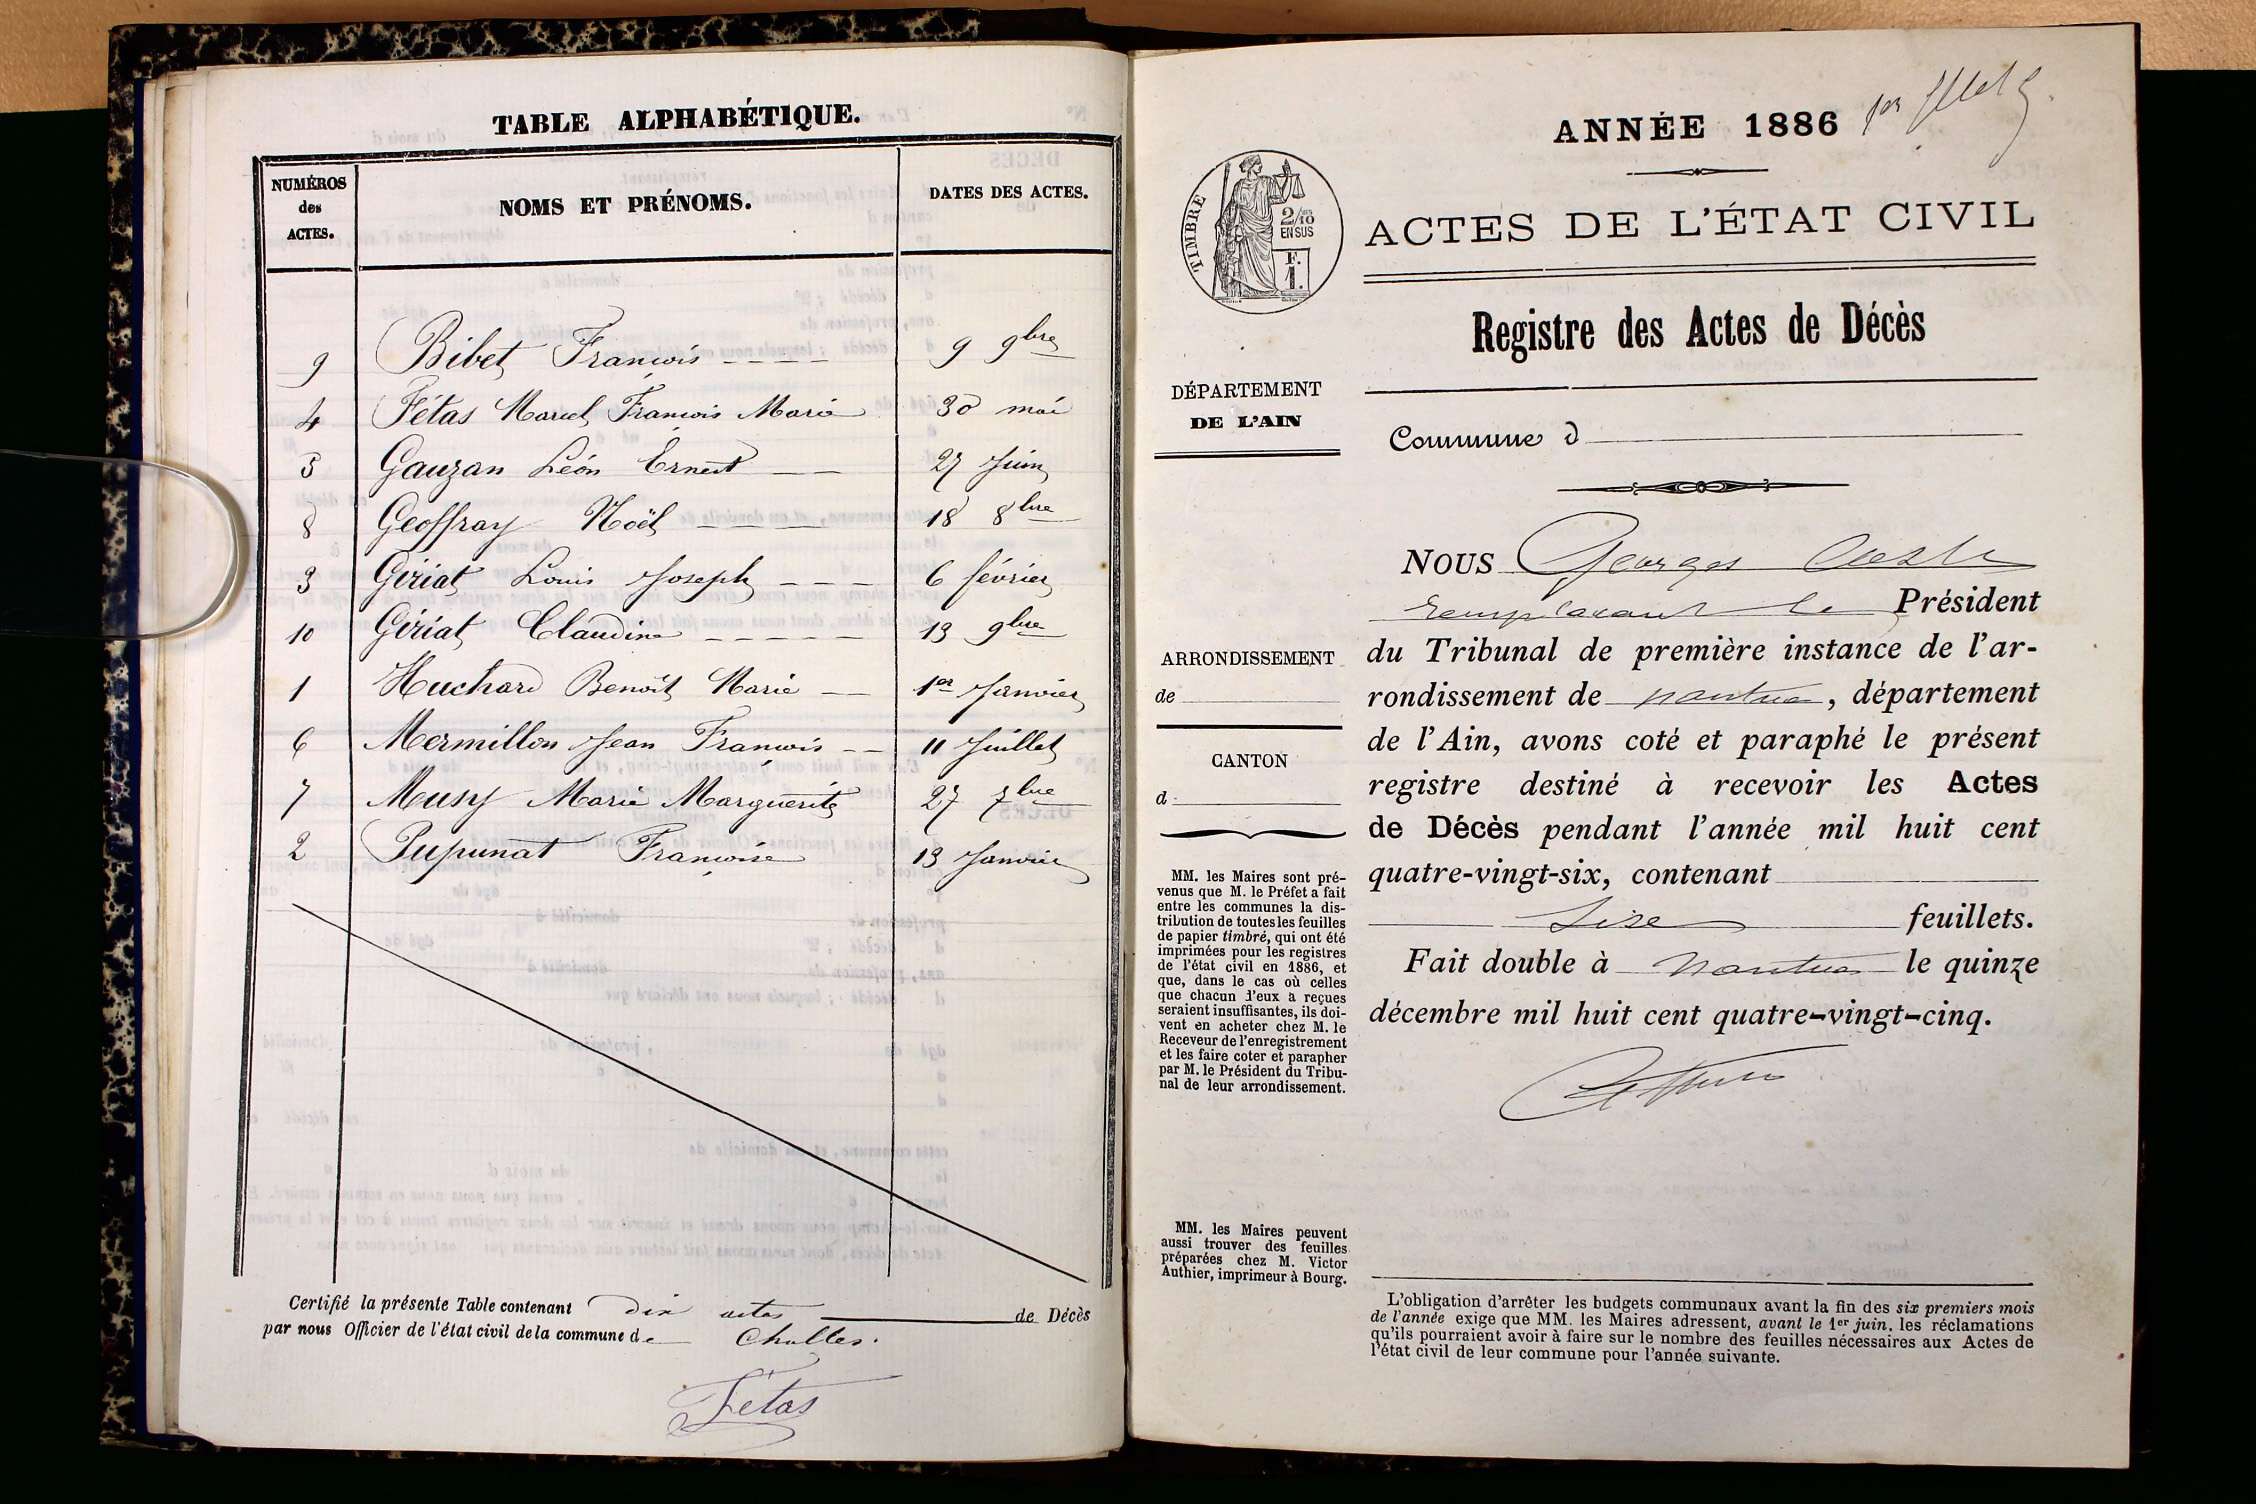 TABLE ALPHABÉTIQUE.
NUMÉROS des ACTES. NOMS ET PRÉNOMS. DATES DES ACTES.
9 Bibet François ---- 9 9bre
4 Fétas Marcel François Marie 30 mai
5 Gauzan Léon Ernest -- 27 Juin
8 Geoffray Noël ---- 18 8bre
3 Gériat Louis Joseph --- 6 février
10 Gériat Claudine ----- 13 9bre
1 Huchard Benoît Marie -- 1er Janvier
6 Mermillon Jean François -- 11 Juillet
7 Musy Marie Marguerite 27 7bre
2 Pupunat Françoise 13 Janvier
Certifié la présente Table contenant dix actes de Décès
par nous Officier de l'état civil de la commune de Challes.
Fétas
ANNÉE 1886
TIMBRE
2/10
EN SUS
F.
1.
ACTES DE L'ÉTAT CIVIL
Registre des Actes de Décès
DÉPARTEMENT
DE L'AIN
Commune d
ARRONDISSEMENT
de
CANTON
d
MM. les Maires sont pré-
venus que M. le Préfet a fait
entre les communes la dis-
tribution de toutes les feuilles
de papier timbré, qui ont été
imprimées pour les registres
de l'état civil en 1886, et
que, dans le cas où celles
que chacun d'eux a reçues
seraient insuffisantes, ils doi-
vent en acheter chez M. le
Receveur de l'enregistrement
et les faire coter et parapher
par M. le Président du Tribu-
nal de leur arrondissement.
MM. les Maires peuvent
aussi trouver des feuilles
préparées chez M. Victor
Authier, imprimeur à Bourg.
NOUS Georges
remplaçant le Président
du Tribunal de première instance de l'ar-
rondissement de nantua, département
de l'Ain, avons coté et paraphé le présent
registre destiné à recevoir les Actes
de Décès pendant l'année mil huit cent
quatre-vingt-six, contenant
feuillets.
Fait double à nantua le quinze
décembre mil huit cent quatre-vingt-cinq.
L'obligation d'arrêter les budgets communaux avant la fin des six premiers mois
de l'année exige que MM. les Maires adressent, avant le 1er juin, les réclamations
qu'ils pourraient avoir à faire sur le nombre des feuilles nécessaires aux Actes de
l'état civil de leur commune pour l'année suivante.